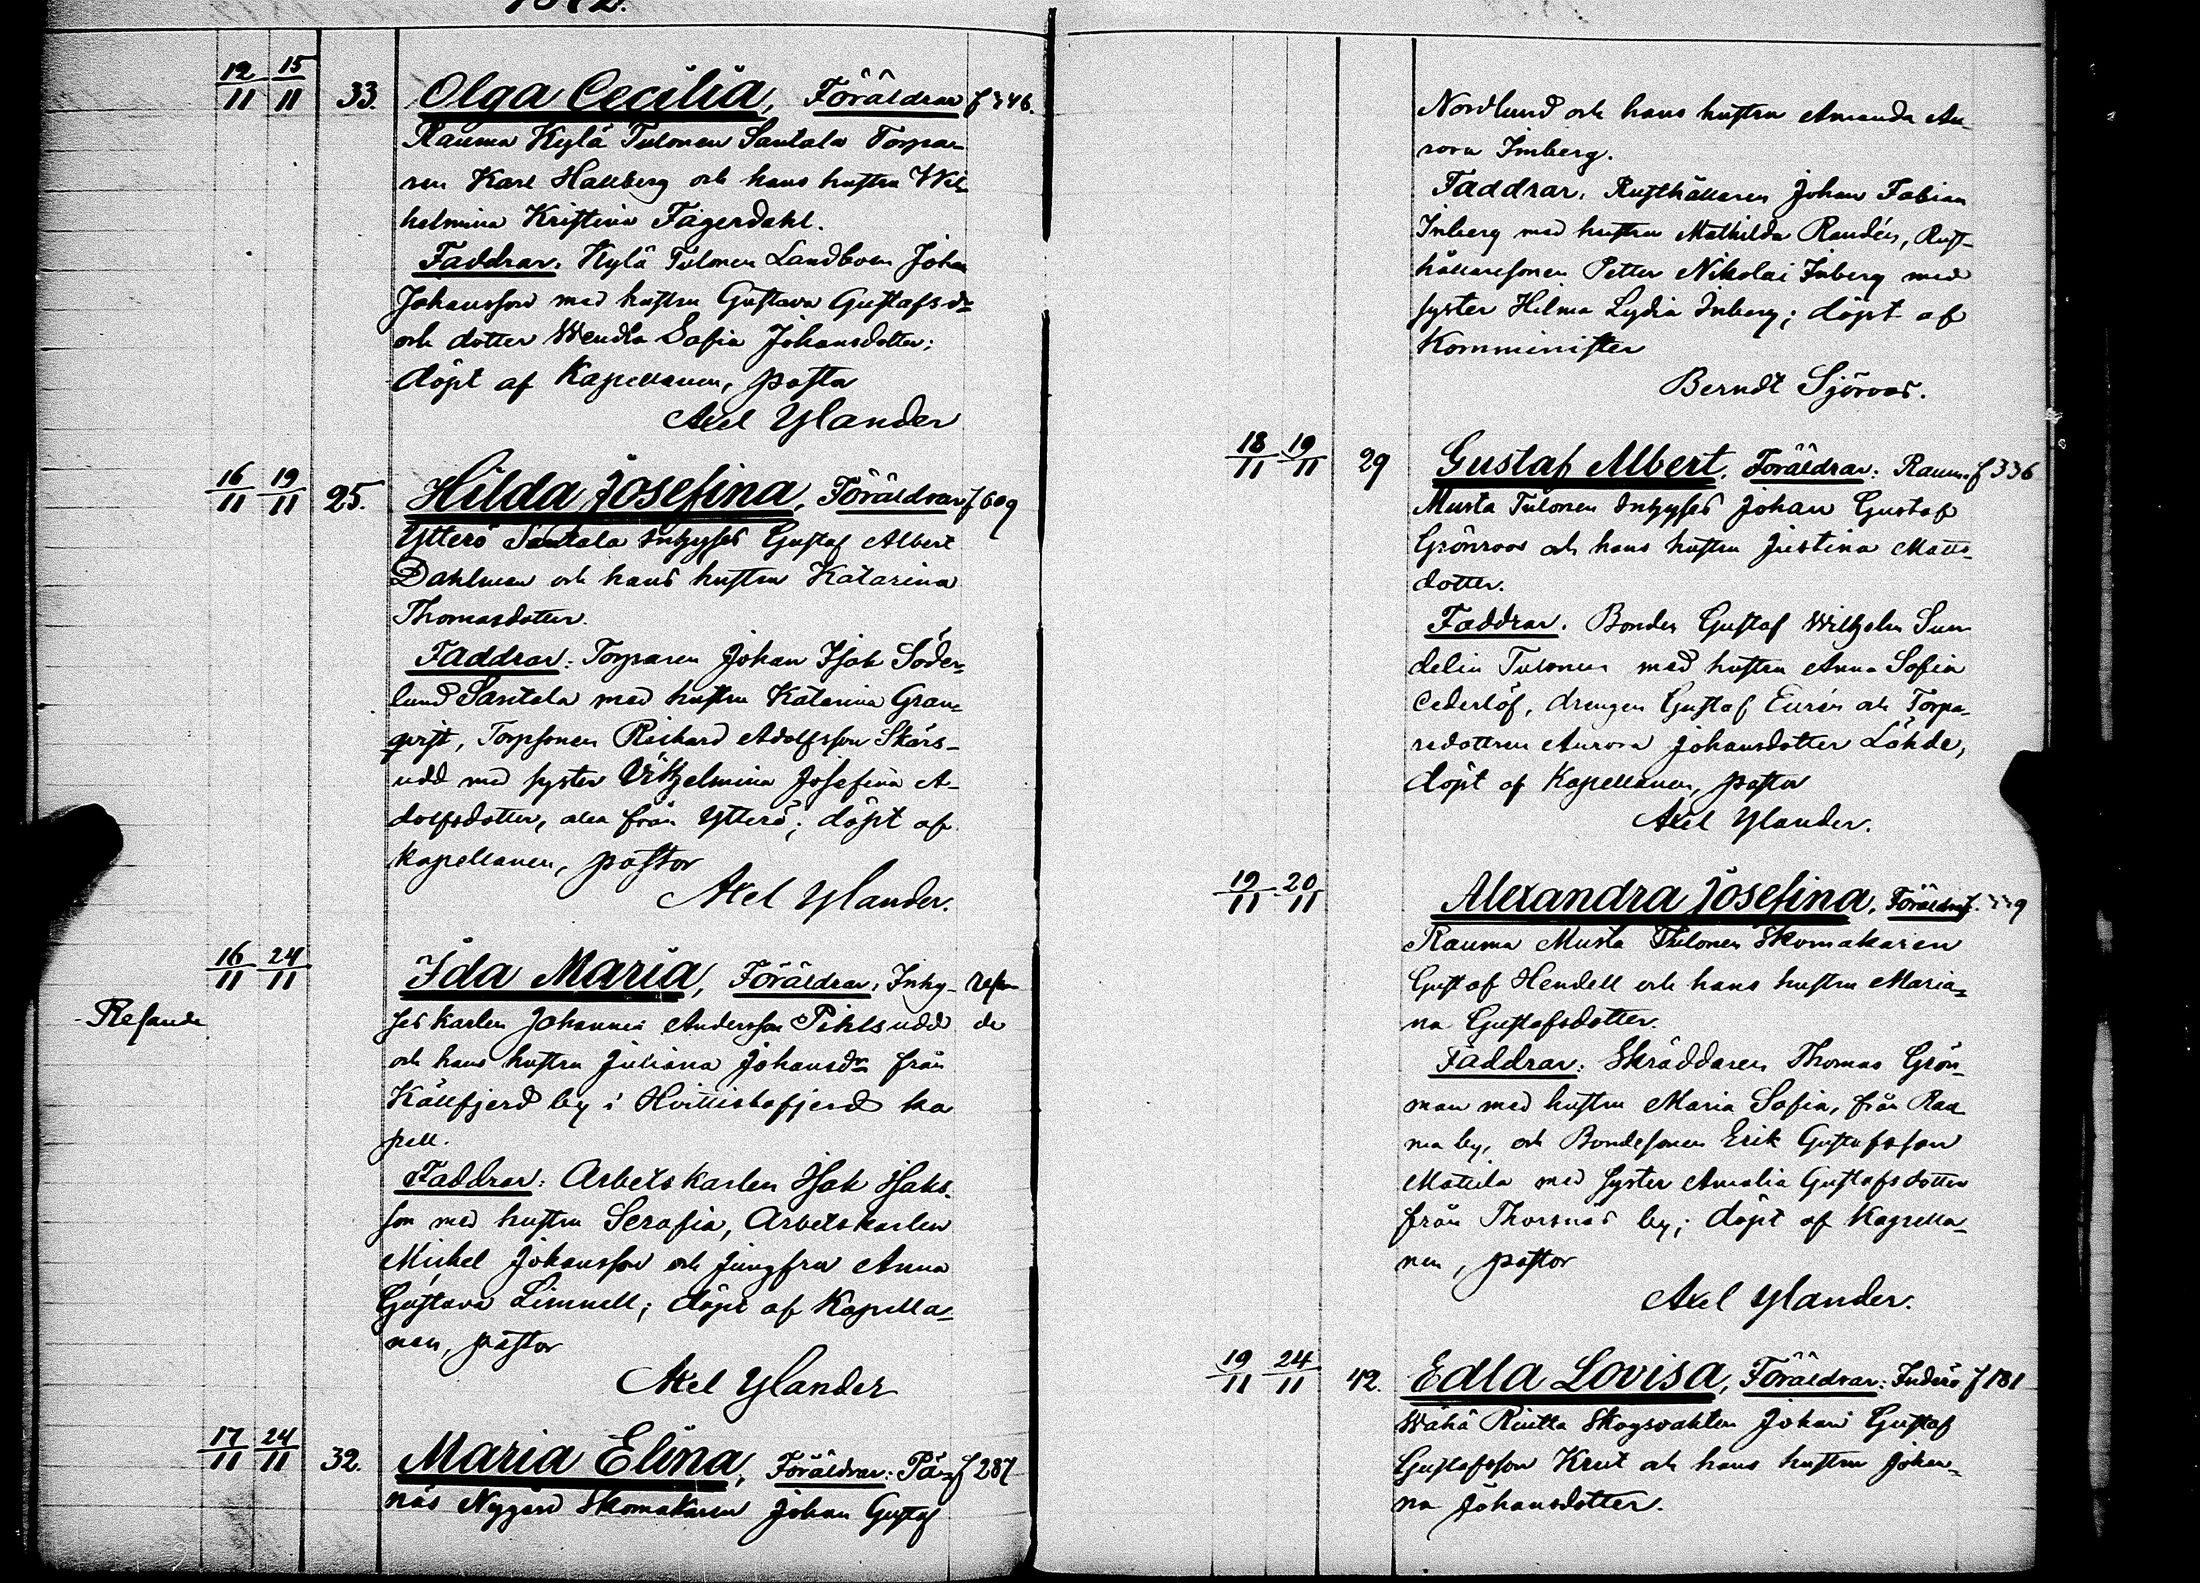 12/11 15/11 33. Olga Cecilia, Föräldrar f 346.
Rauma Kylä Tulonen Santala Torpa-
ren Karl Hallberg och hans hustru Wil-
helmina Kristina Fagerdahl.
Faddrar. Kylä Tulonen Landboen Johan
Johansson med hustru Gustava Gustafsdr
och dotter Wendla Sofia Johansdotter;
döpt af Kapellanen, pastor
Axel Ylander
16/11 19/11 25. Hilda Josefina, Föräldrar f 609
Ytterö Santala Inhyses Gustaf Albert
Dahlman och hans hustru Katarina
Thomasdotter.
Faddrar: Torparen Johan Isak Söder-
lund Santala med hustru Katarina Gran-
qvist, Torpsonen Richard Adolfsson Skärs-
udd med syster Vilhelmina Josefina A-
dolfsdotter, alla från Ytterö; döpt af
kapellanen, pastor
Axel Ylander.
16/11 24/11 Ida Maria, Föräldrar, Inhy- resan
Resande ses karlen Johannes Andersson Pihlsudd de
och hans hustru Juliana Johansdr från
Källfjerd by i Hvittisbofjerd ka
pell.
Faddrar: Arbetskarlen Isak Isaks-
son med hustru Serafia, Arbetskarlen
Mickel Johansson och jungfru Anna
Gustava Limnell; döpt af Kapella-
nen, pastor
Axel Ylander
17/11 24/11 32. Maria Elina, Föräldrar: Pä- f 287
näs Nygård Skomakaren Johan Gustaf
Nordlund och hans hustru Amanda Au-
rora Inberg.
Faddrar. Rusthållaren Johan Fabian
Inberg med hustru Mathilda Randén, Rust-
hållaresonen Petter Nikolai Inberg med
syster Hilma Lydia Inberg; döpt af
Komminister
Berndt Sjöroos.
18/11 19/11 29 Gustaf Albert. Föräldrar: Rauma f 336
Musta Tulonen Inhyses Johan Gustaf
Grönroos och hans hustru Justina Matts-
dotter.
Faddrar. Bonden Gustaf Wilhelm Sun
delin Tulonen med hustru Anna Sofia
Cederlöf, drengen Gustaf Eurén och Torpa-
redottren Aurora Johansdotter Löhde,
döpt af Kapellanen, pastor
Axel Ylander.
19/11 20/11 Alexandra Josefina. Föräldrar f. 339
Rauma Musta Thulonen Skomakaren
Gustaf Hendell och hans hustru Maria-
na Gustafsdotter.
Faddrar: Skräddaren Thomas Grön-
man med hustru Maria Sofia, från Rau
ma by, och Bondesonen Erik Gustafsson
Mattila med syster Amalia Gustafsdotter
från Thorsnäs by; döpt af Kapella-
nen, pastor
Axel Ylander.
19/11 24/11 42. Edla Lovisa, Föräldrar: Inderö f 181
Wähä Riutta Skogsvakten Johan Gustaf
Gustafsson Krut och hans hustru Johan-
na Johansdotter.